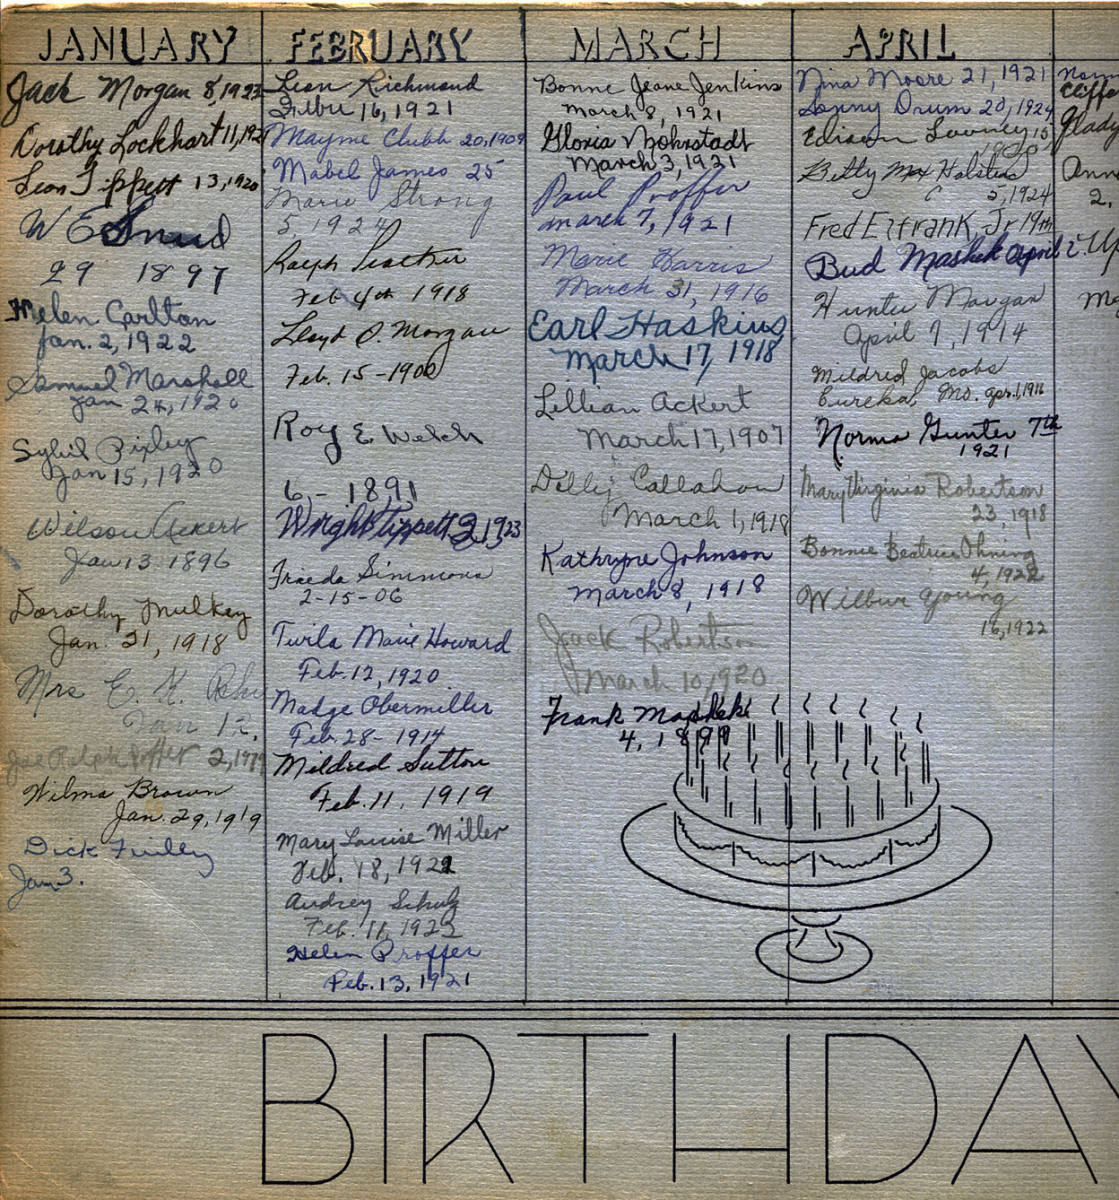 JANUARY
Jack Morgan 8, 1923
Dorothy Lockhart 11, 192
Leon Tippett 13, 1920
W E
29 1897
Helen Carlton
Jan. 2, 1922
Samuel Marshall
Jan 24, 1920
Sybil Pixley
Jan 15, 1920
Wilson Ackert
Jan 13 1896
Dorothy Mulkey
Jan. 21, 1918
Mrs E. K.
Jan 12,
2, 1919
Wilma Brown
Jan. 29, 1919
Dick Finley
Jan 3.
FEBRUARY
Leon Richmond
16, 1921
Mayme Clubb 20, 1909
Mabel James 25
Marie Strong
5, 1924
Ralph
Feb 4th 1918
Lloyd O. Morgan
Feb. 15-1900
Roy E Welch
6 - 1891
Wright Tippett 2, 1923
Frieda Simmons
2-15-06
Twila Marie Howard
Feb. 12, 1920
Madge Obermiller
Feb 28- 1914
Mildred Sutton
Feb. 11. 1919
Mary Louise Miller
Feb. 18, 1922
Audrey Schulz
Feb. 11, 1922
Helen Proffer
Feb. 13, 1921
MARCH
Bonne Jeane Jenkins
March 8, 1921
Gloria Nohrstadt
March 3, 1921
Paul Proffer
March 7, 1921
Marie Harris
March 31, 1916
Earl Haskins
March 17, 1918
Lillian Ackert
March 17, 1907
Dilly Callahan
March 1, 1918
Kathryne Johnson
March 8, 1918
Jack Robertson
March 10, 1920
Frank Mashek
4, 1899
APRIL
Nina Moore 21, 1921
Sonny Drum 20, 1924
Edison Looney 15
1920
Betty Mae Halsted
5, 1924
Fred Eifrank, Jr 19th
Bud Mashek April
Hunter Morgan
April 7, 1914
Mildred Jacobs
Eureka, Mo. Apr. 1, 1916
Norma Gunter 7th
1921
Mary Virginia Robertson
23, 1918
Bonnie Beatrice Ohning
4, 1922
Wilbur Young
16, 1922
2,
BIRTHDAY